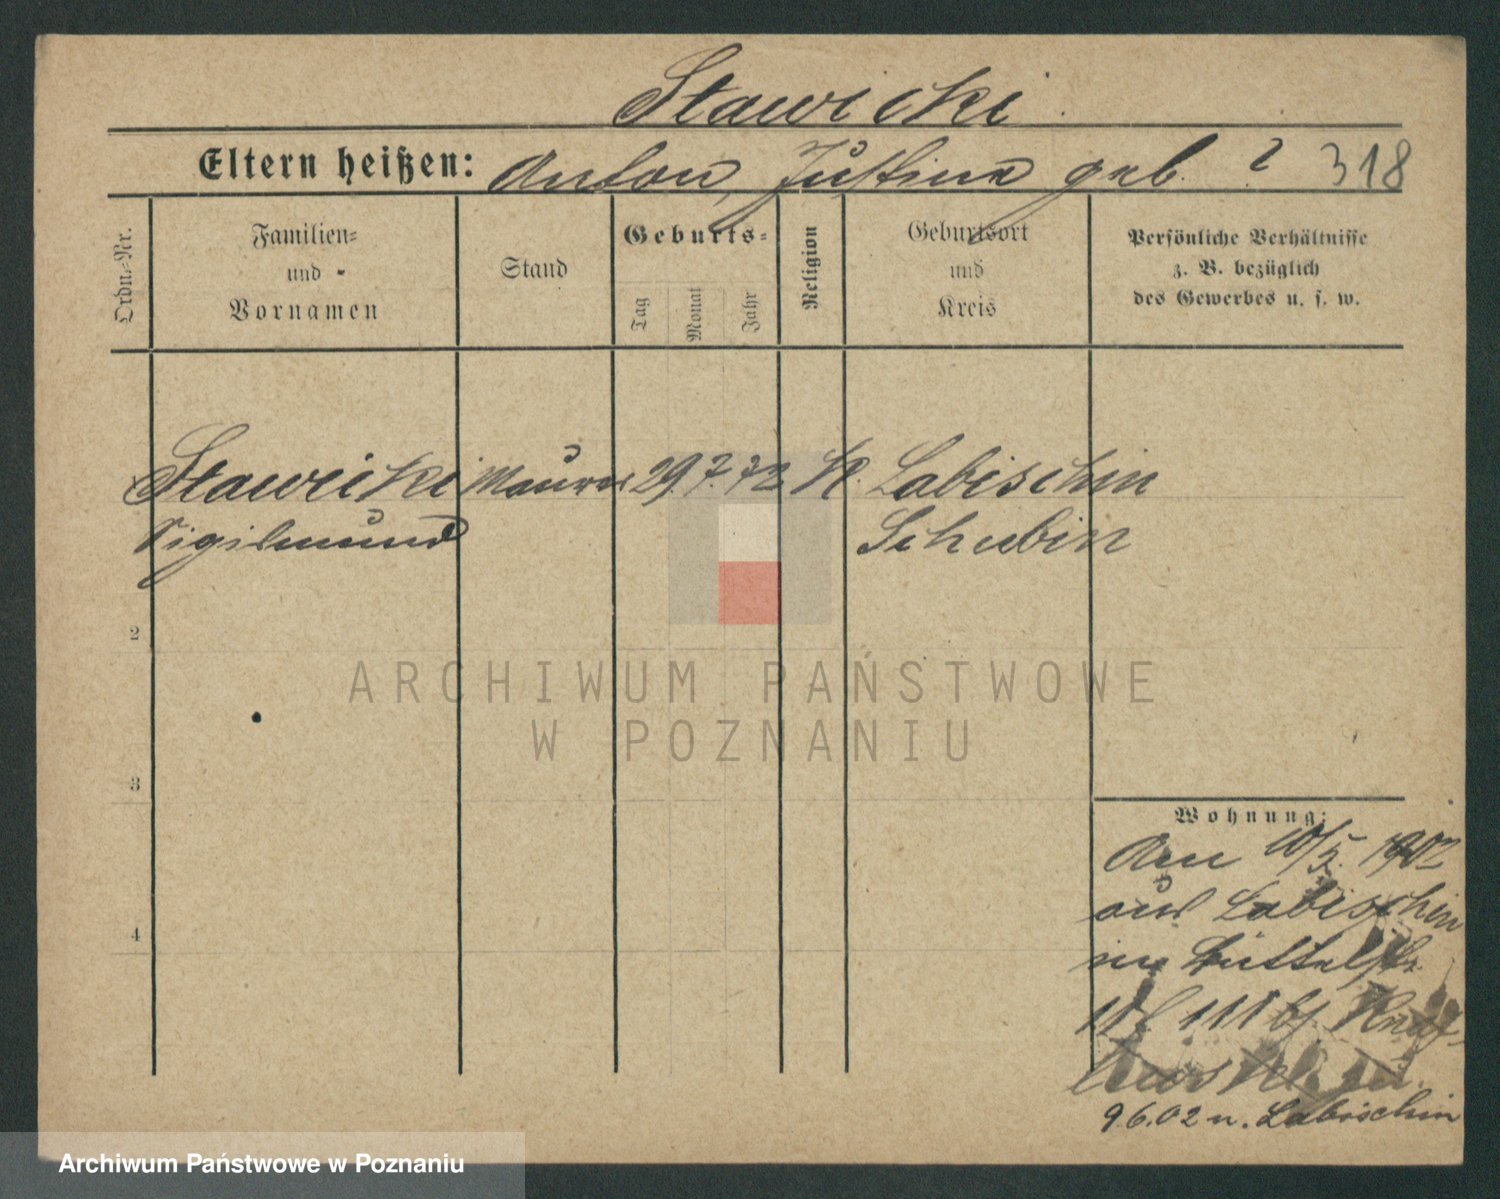 Stawicki
Eltern heißen: Anton, Justine geb. ? 318
Ordn.-Nr.
Familien-
und
Vornamen
Stand
Geburts-
Tag
Monat
Jahr
Religion
Geburtsort
und
Kreis
Persönliche Verhältnisse
z. B. bezüglich
des Gewerbes u. s. w.
Stawicki Maurer 29. 7. 72 K. Labischin
Sigismund Schubin
2
3
4
Wohnung:
Am 10/5. 1902
aus Labischin
9.6.02 n. Labischin
ARCHIWUM PAŃSTWOWE
W POZNANIU
Archiwum Państwowe w Poznaniu